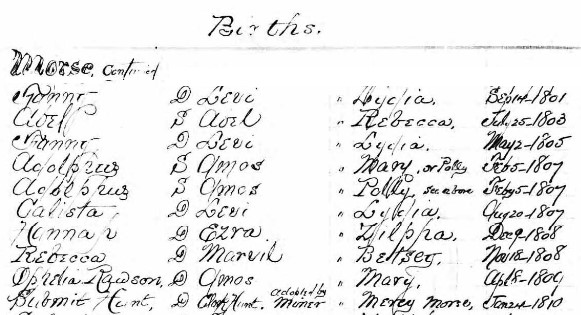 Births.
Morse. Continued
Fanny D Levi " Lydia. Sep14-1801
Abel S Abel " Rebecca. July25-1803
Fanny D Levi " Lydia. May2-1805
Adolphus S Amos " Mary, or Polly Feb5-1807
Adolphus S Amos " Polly, see above Feby5-1807
Calista, D Levi " Lydia. Aug20-1807
Hannah D Ezra " Zilpha. Dec9-1808
Rebecca D Marvil " Bettsey. Nov18-1808
Ophelia Rawson, D Amos " Mary. Apl8-1809
Submit Hunt, D Hunt. adobted by Miner " Mercy Morse, Jan24-1810